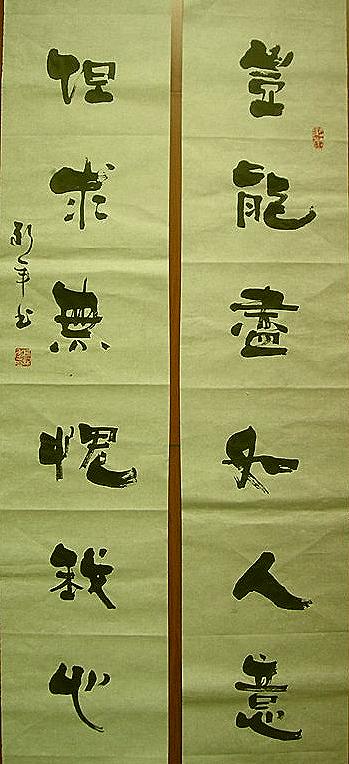 豈能盡如人意
但求無愧我心